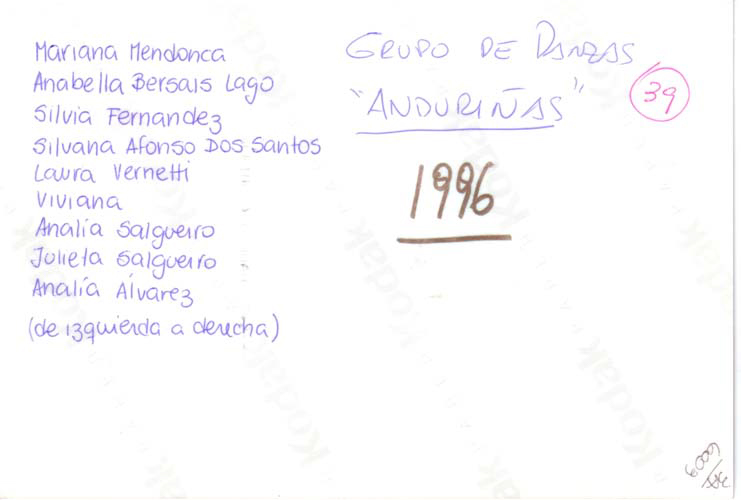 Mariana Mendonca
Anabella Bersais Lago
Silvia Fernandez
Silvana Afonso Dos Santos
Laura Vernetti
Viviana
Analía Salgueiro
Julieta Salgueiro
Analía Álvarez
(de izquierda a derecha)
GRUPO DE DANZAS
"ANDURIÑAS"
39
1996
Kodak
Kodak
Kodak
Kodak
Kodak
Kodak